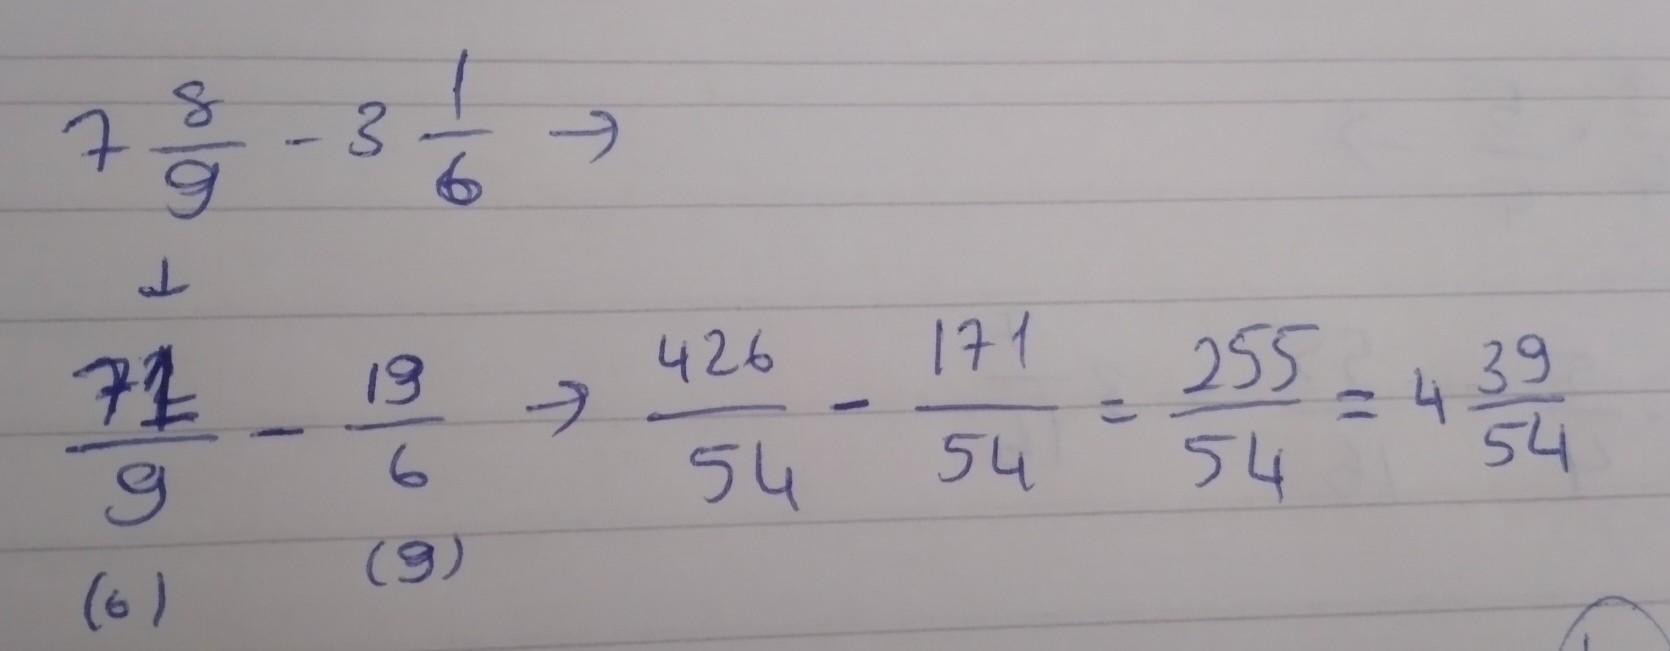 7 8/9 - 3 1/6 →
↓
71/9 - 19/6 → 426/54 - 171/54 = 255/54 = 4 39/54
(6) (9)